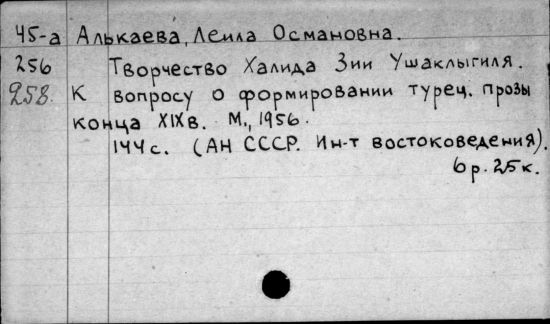 45-а Алькаева, Леила Османовна.
256 Творчество Халида Зии Ушаклыгиля.
258. К вопросу о формировании турец. прозы
конца XIX в. М., 1956.
144 с. (АН СССР. Ин-т востоковедения).
6 р. 25 к.